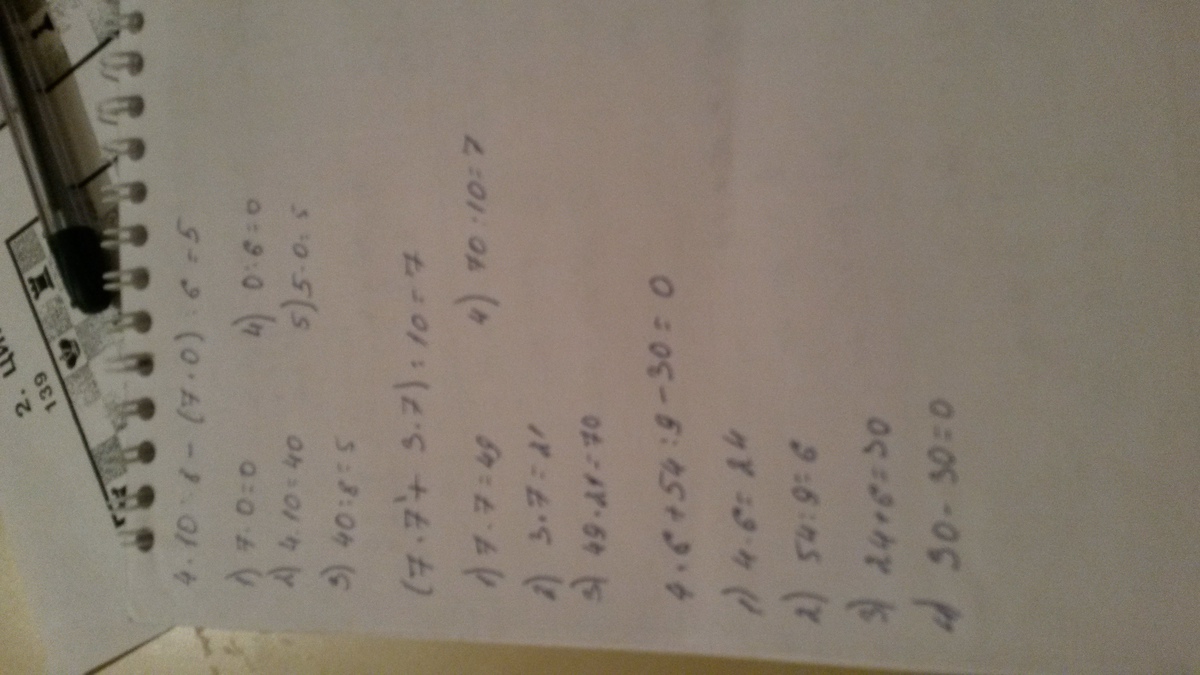 4·10:8-(7·0):6=5
1) 7·0=0 4) 0:6=0
2) 4·10=40 5) 5-0=5
3) 40:8=5
(7·7+3·7):10=7
1) 7·7=49 4) 70:10=7
2) 3·7=21
3) 49+21=70
4·6+54:9-30=0
1) 4·6=24
2) 54:9=6
3) 24+6=30
4) 30-30=0
2.
139